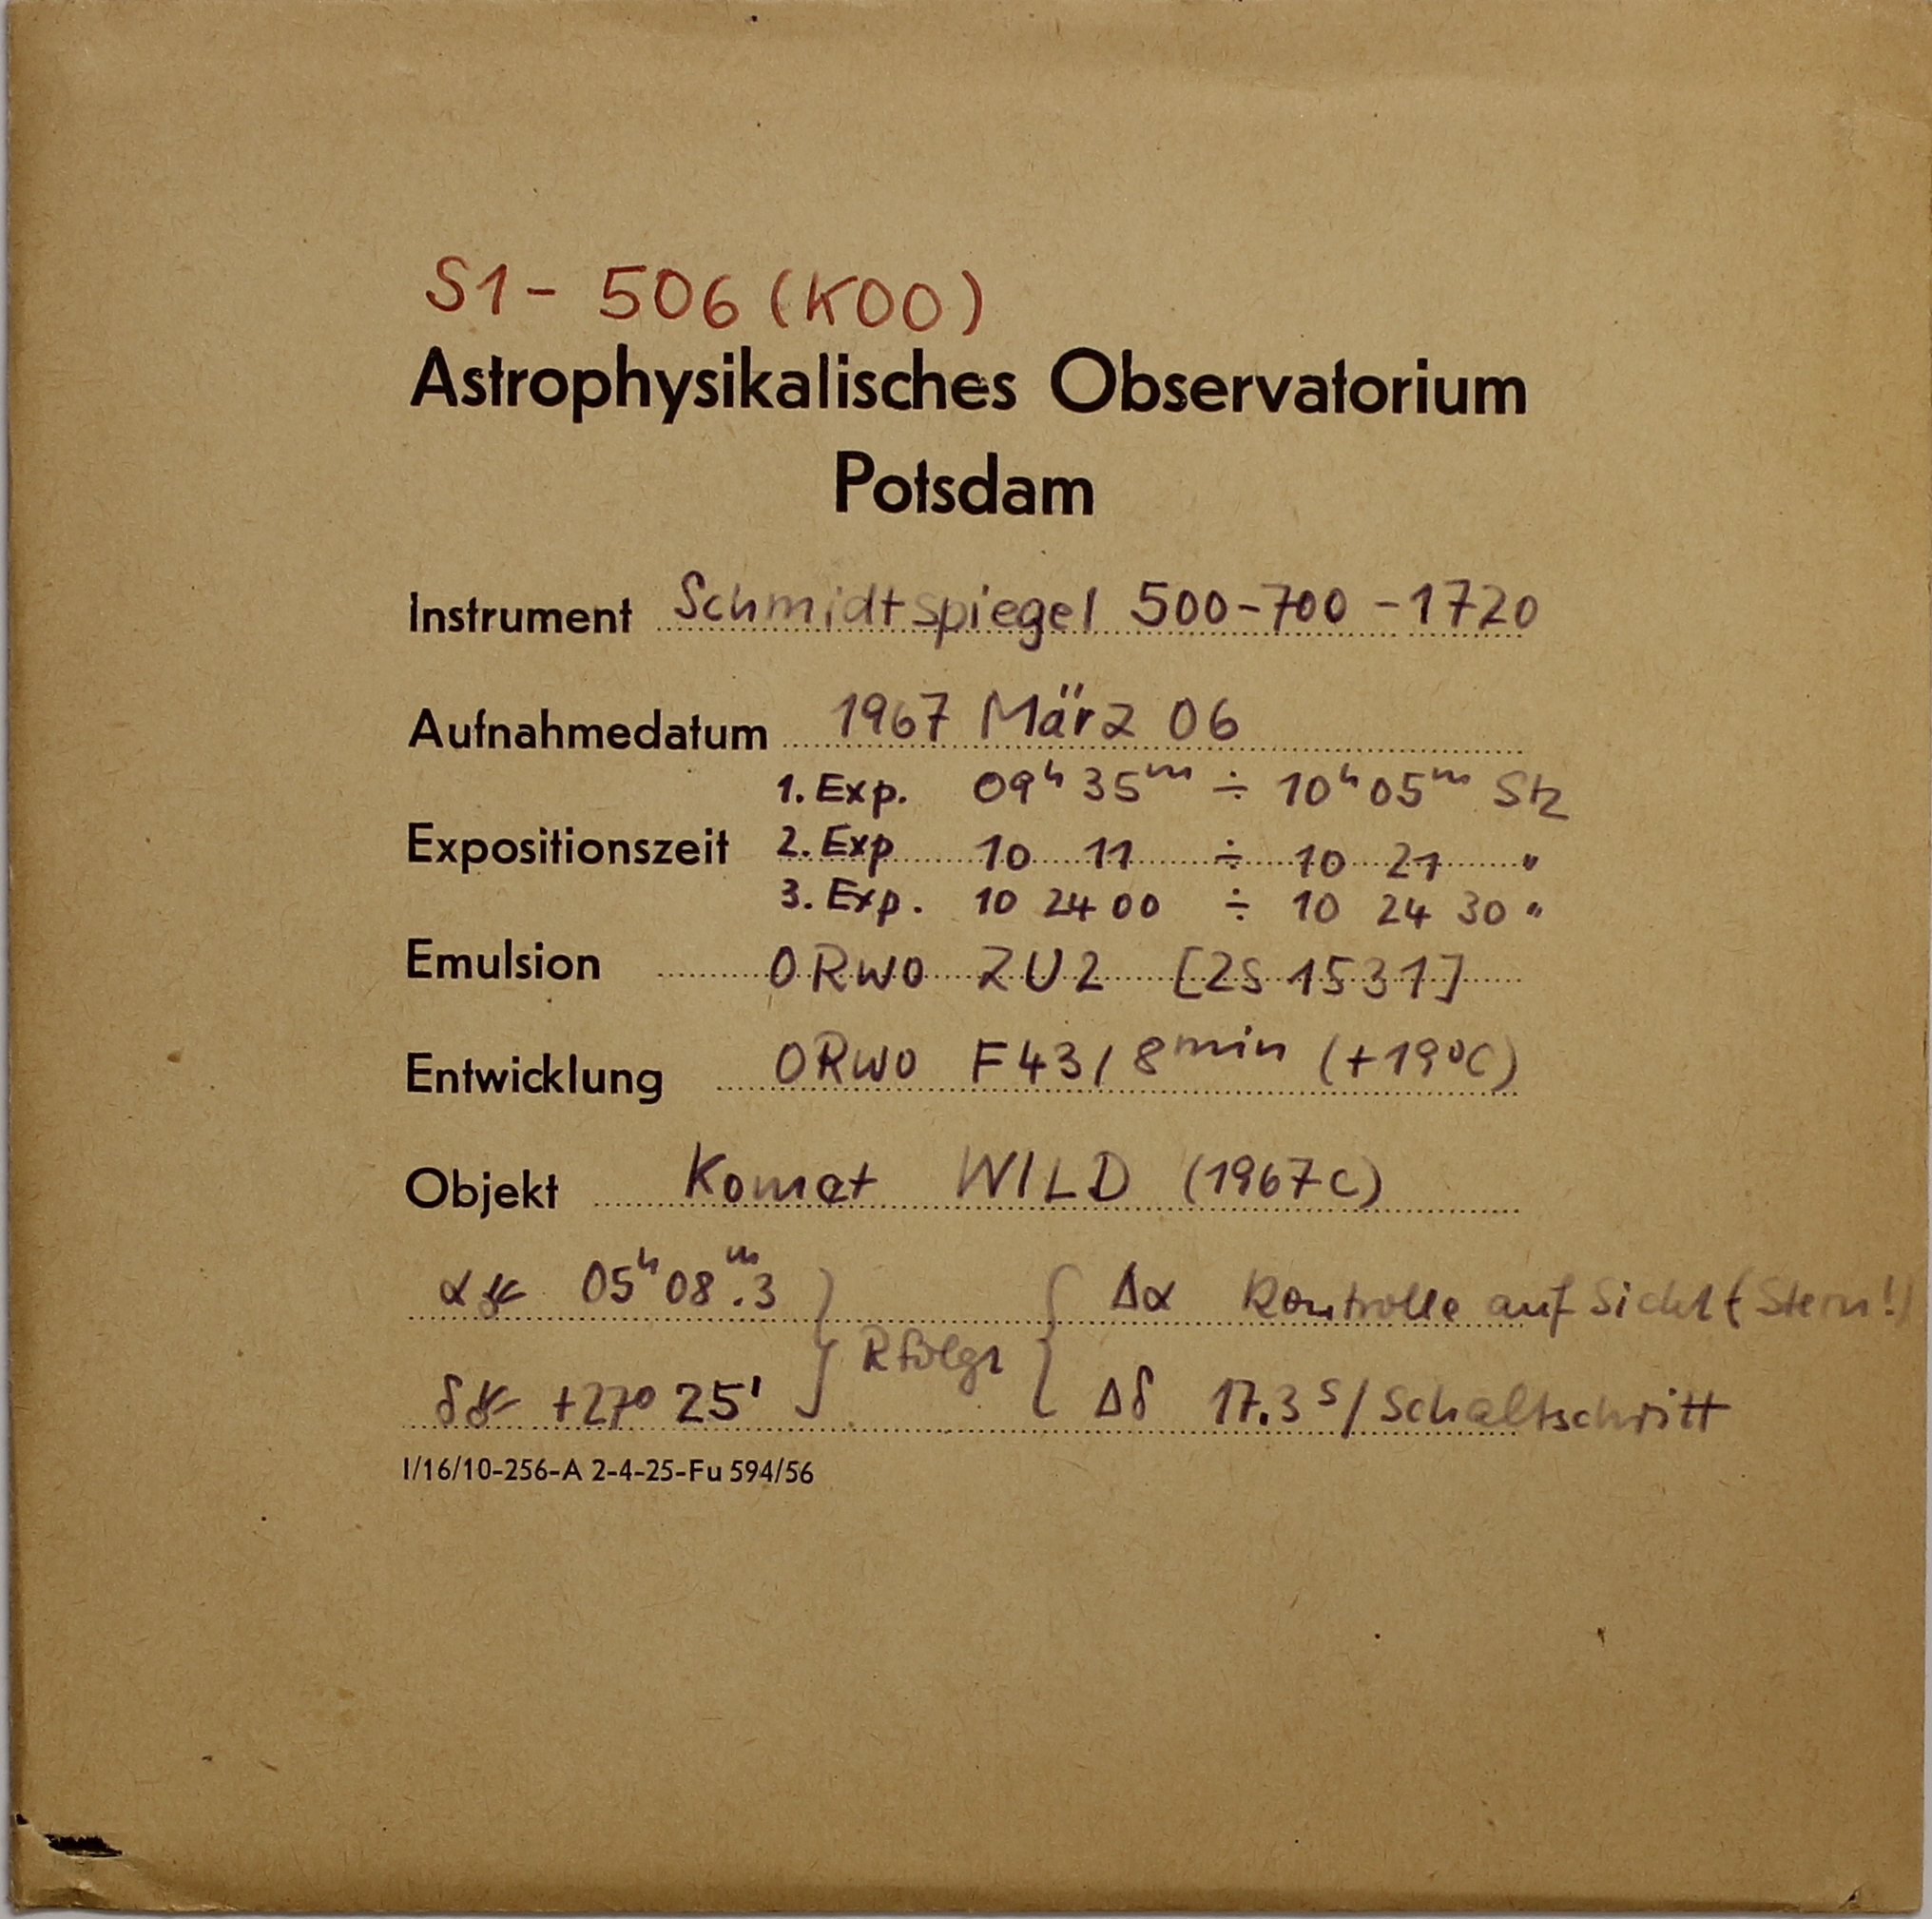 S1 - 506 (K00)
Astrophysikalisches Observatorium
Potsdam
Instrument Schmidtspiegel 500-700-1720
Aufnahmedatum 1967 März 06
1. Exp. 09ʰ 35ᵐ ÷ 10ʰ 05ᵐ Stz
Expositionszeit 2. Exp 10 11 ÷ 10 21 "
3. Exp. 10 24 00 ÷ 10 24 30 "
Emulsion ORWO ZU2 [2S 1531]
Entwicklung ORWO F43 / 8 min (+19°C)
Objekt Komet WILD (1967c)
α☄ 05ʰ 08ᵐ.3 } { Δα Kontrolle auf Sicht (Stern!)
δ☄ +27° 25' Δδ 17.3ˢ/Schaltschritt
I/16/10-256-A 2-4-25-Fu 594/56